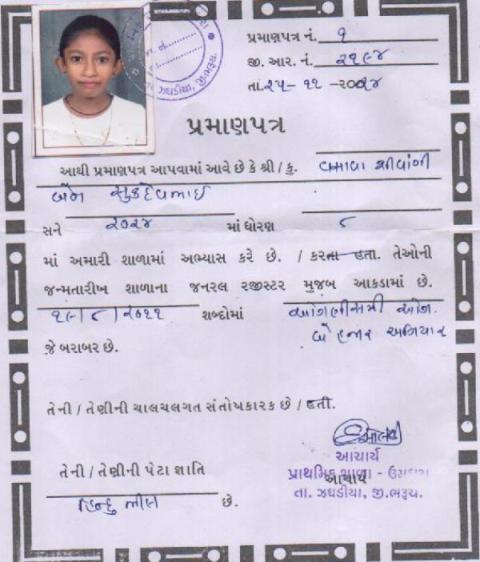 પ્રમાણપત્ર નં. ૧
જી. આર. નં. ૨૧૯૪
તા.૨૫- ૧૧ -૨૦૨૪
પ્રમાણપત્ર
આથી પ્રમાણપત્ર આપવામાં આવે છે કે શ્રી / કુ. વસાવા શીવાંગી
બેન સુકદેવભાઈ
સને ૨૦૨૪ માં ધોરણ ૮
માં અમારી શાળામાં અભ્યાસ કરે છે. / કરતા હતા. તેઓની
જન્મતારીખ શાળાના જનરલ રજીસ્ટર મુજબ આકડામાં છે.
૧૯/૮/૨૦૧૧ શબ્દોમાં ઓગણીસમી ઓગ.
બે હજાર અગિયાર
જે બરાબર છે.
તેની / તેણીની ચાલચલગત સંતોષકારક છે / હતી.
આચાર્ય
તેની / તેણીની પેટા જ્ઞાતિ
પ્રાથમિક શાળા -
આચાર્ય
હિન્દુ ભીલ છે.
તા. ઝઘડીયા, જી.ભરૂચ.